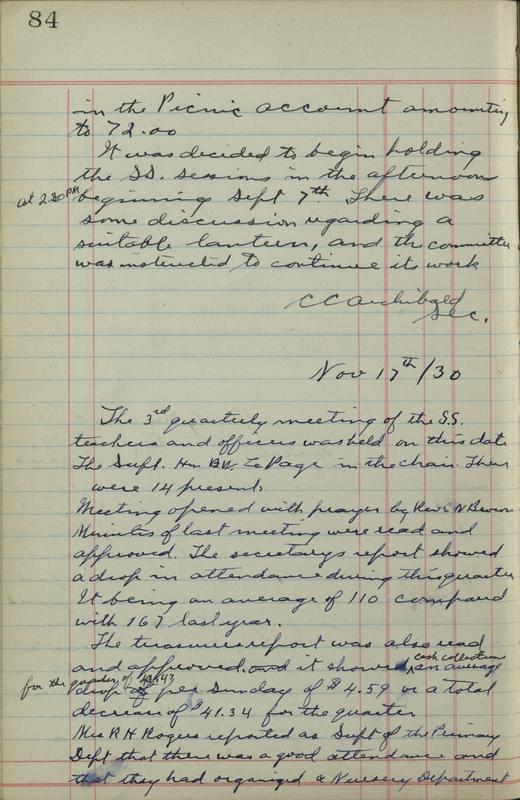 84
in the Picnic account amounting
to 72.00
It was decided to begin holding
the SS. sessions in the afternoon
at 2.30 PM beginning Sept 7th There was
some discussion regarding a
suitable lantern, and the committee
was instructed to continue its work
CC Archibald
Sec.
Nov 17th/30
The 3rd quarterly meeting of the S.S.
teachers and officers was held on this date
The Supt. Hn BW. LePage in the chair. There
were 14 present.
Meeting opened with prayer by Rev. N Brown
Minutes of last meeting were read and
approved. The secretarys report showed
a drop in attendance during this quarter
It being an average of 110 compared
with 167 last year.
The treasurers report was also read
and approved. and it showed cash collection an average
for the quarter of
drop of per Sunday of $4.59 or a total
decrease of $41.34 for the quarter
Mrs R H Rogers reported as Supt of the Primary
Dept that there was a good attendance and
that they had organized a Nursery Department